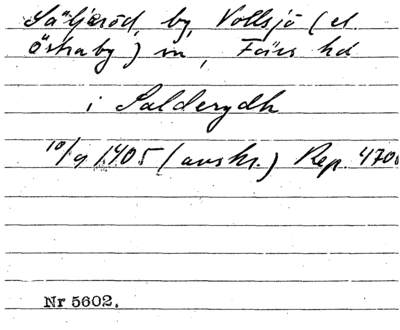 Säljeröd, by, Vollsjö (el.
Östraby) sn, Färs hd
i Salderydh
10/9 1405 (avskr.) Rep. 470
Nr 5602.